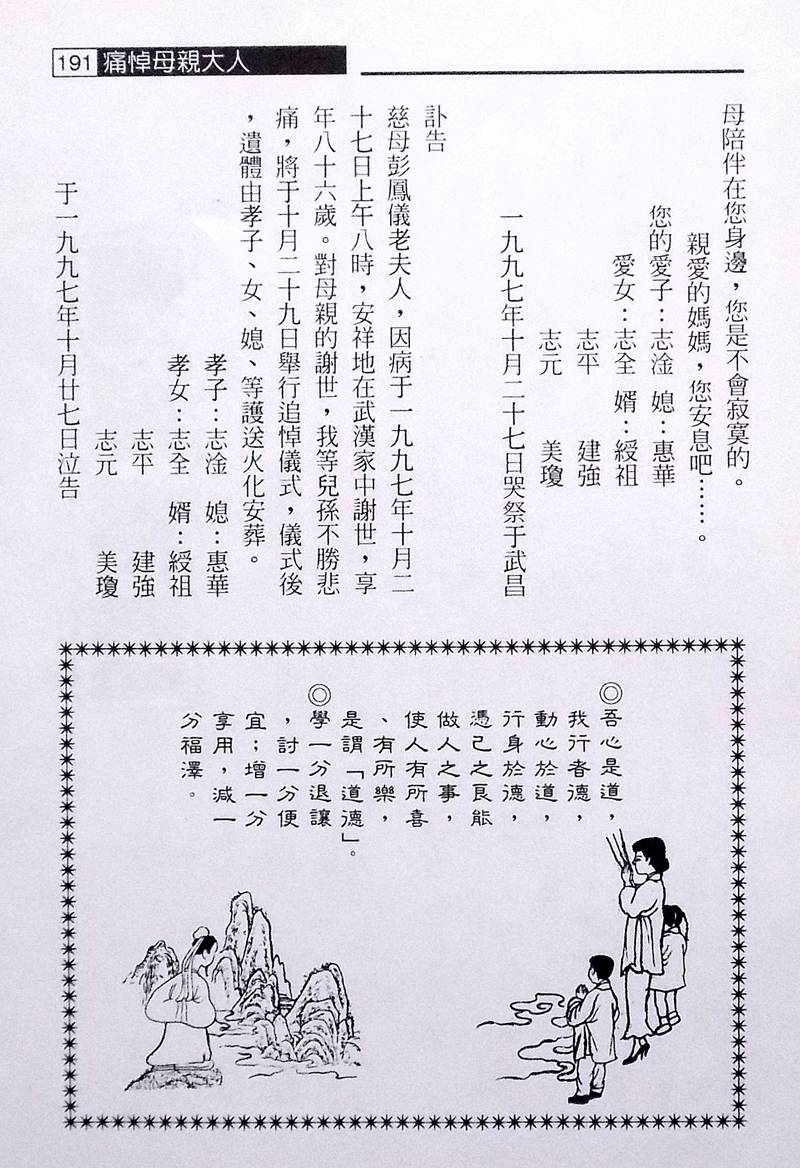 191 痛悼母親大人
母陪伴在您身邊，您是不會寂寞的。
親愛的媽媽，您安息吧……。
您的愛子：志淦 媳：惠華
愛女：志全 婿：綬祖
志平 建強
志元 美瓊
一九九七年十月二十七日哭祭于武昌
訃告
慈母彭鳳儀老夫人，因病于一九九七年十月二
十七日上午八時，安祥地在武漢家中謝世，享
年八十六歲。對母親的謝世，我等兒孫不勝悲
痛，將于十月二十九日舉行追悼儀式，儀式後
，遺體由孝子、女、媳、等護送火化安葬。
孝子：志淦 媳：惠華
孝女：志全 婿：綬祖
志平 建強
志元 美瓊
于一九九七年十月廿七日泣告
◎吾心是道，
我行者德，
動心於道，
行身於德，
憑己之良能
做人之事，
使人有所喜
、有所樂，
是謂「道德」。
◎學一分退讓
，討一分便
宜；增一分
享用，減一
分福澤。